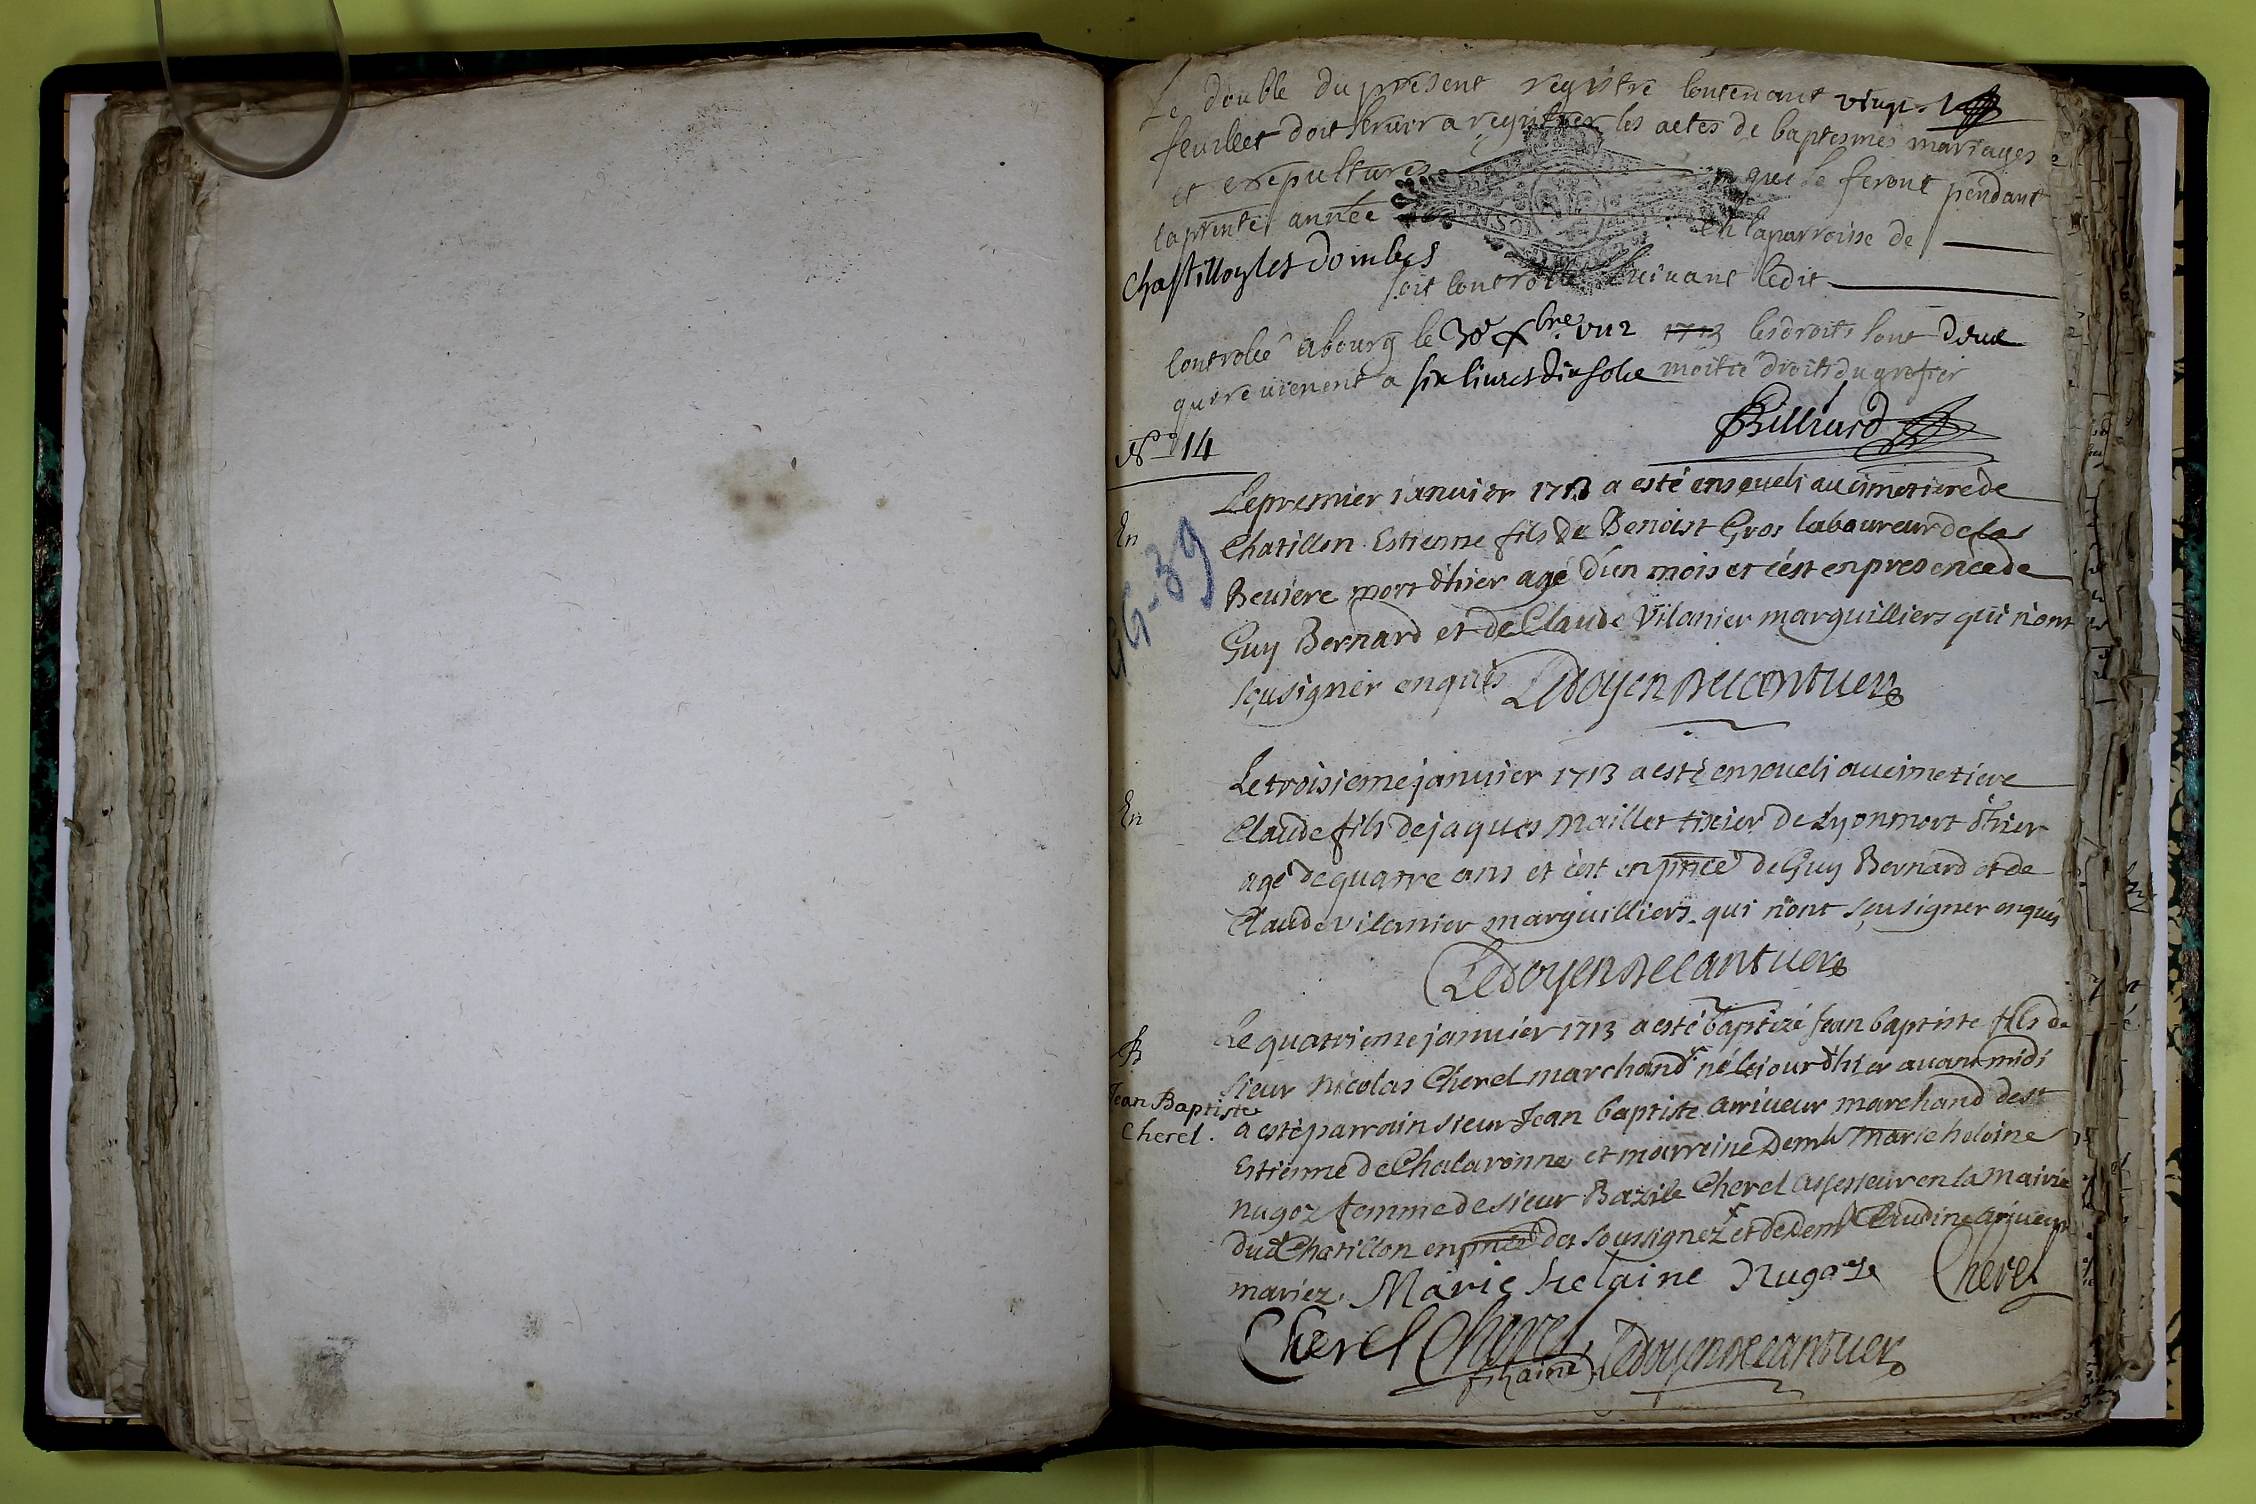 Le double du present registre contenant vingt
feuillet doit servir a registrer les actes de baptesmes mariages
et ensepultures que se feront pendant
la pnte année en la parroisse de
Chastillon les dombes
soit controllé suivant ledit
Controlleé a bourg le 30e xbre 1712 1713 les droits sont deue
que revienent a six livres dix sols moitie droits du grefier
Billiard
No 14
En
Le premier janvier 1713 a esté enseveli au cimetiere de
Chatillon Estienne fils de Benoist Gros laboureur de la
Beviere mort d'hier agé d'un mois et c'est en presence de
Guy Bernard et de Claude Vilanier marguilliers qui n'ont
sçu signer enquis Ledoyen Decantuer
GG-39
En
Le troisieme janvier 1713 a esté enseveli au cimetiere
Claude fils de jaques Maillet tixier de Lyon mort d'hier
agé de quatre ans et c'est en pnce de Guy Bernard et de
Claude vilanier marguilliers qui n'ont sçu signer enquis
Ledoyen Decantuer
B
Jean Baptiste
Cherel.
Le quatrieme janvier 1713 a esté baptizé Jean baptiste fils de
sieur Nicolas Cherel marchand né le jour d'hier avant midi
a esté parrain sieur Jean baptiste arriveur marchand de st
Estienne de Chalaronne et marreine Demle Marie heleine
nugoz femme de sieur Bazile Cherel assesseur en la Mairie
dud Chatillon en pnce des soussignez et de Deml Claudine ariveur
mariez. Marie helaine Nugoz Cherel
Cherel Cherel Ledoyen Decantuer
fils ainé